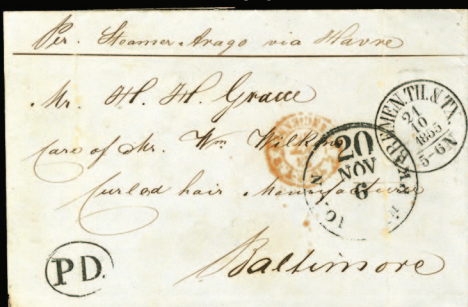 Per Steamer Arago via Havre
Mr. H. H. Graue
Care of Mr. Wm Wilkens
Curled hair Manufacturer
Baltimore
BREMEN. TH. & TX.
21
10
1865
5-6 N
20
NOV
6
PD.